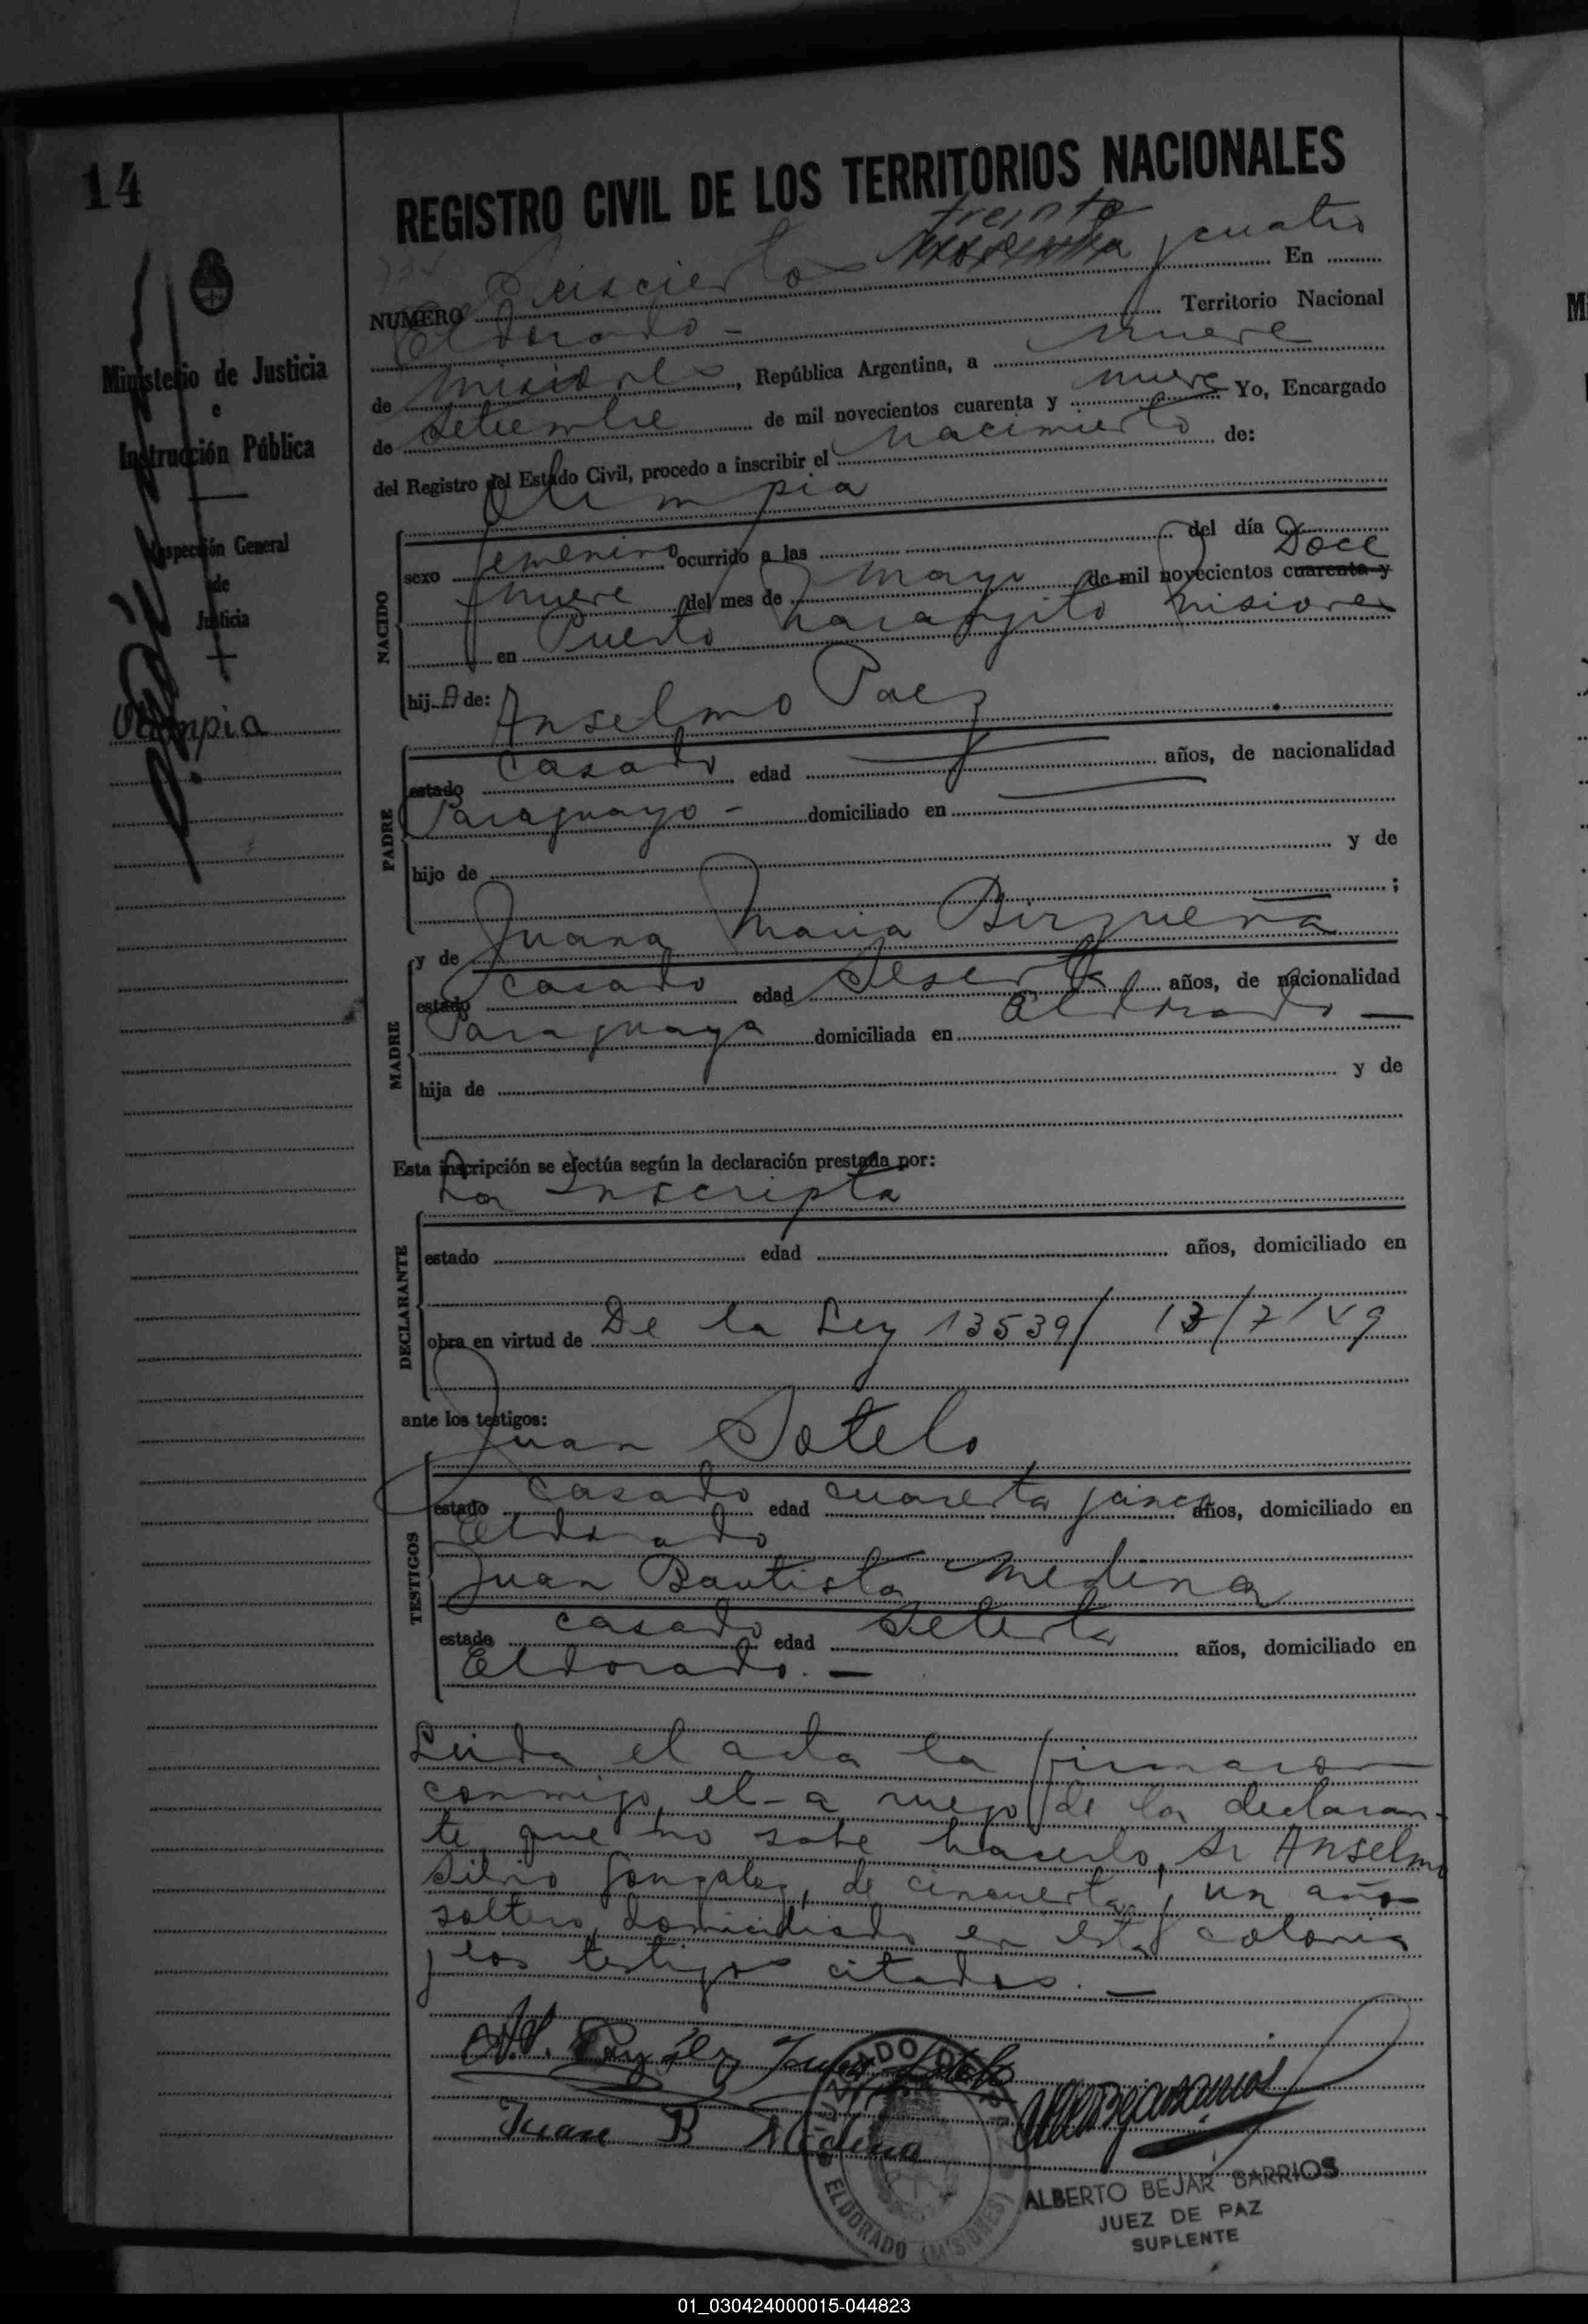 14
REGISTRO CIVIL DE LOS TERRITORIOS NACIONALES
treinta
NUMERO Seiscientos y cuatro En
Eldorado - Territorio Nacional
de Misiones, República Argentina, a nueve
de Setiembre de mil novecientos cuarenta y nueve Yo, Encargado
del Registro del Estado Civil, procedo a inscribir el nacimiento de:
Olimpia
Ministerio de Justicia
e
Instrucción Pública
Inspección General
de
Justicia
Olimpia
NACIDO
sexo femenino ocurrido a las del día
nueve del mes de mayo de mil novecientos cuarenta y Doce
en Puerto Naranjito Misiones
hija de: Anselmo Paez
PADRE
estado casado edad años, de nacionalidad
Paraguayo - domiciliado en
hijo de y de
;
MADRE
y de Juana Maria
estado casado edad años, de nacionalidad
Paraguaya domiciliada en Eldorado
hija de y de
Esta inscripción se efectúa según la declaración prestada por:
La Inscripta
DECLARANTE
estado edad años, domiciliado en
obra en virtud de De la Ley 13539/ 13/7/49
ante los testigos:
Juan Sotelo
TESTIGOS
estado casado edad cuarenta y años, domiciliado en
Eldorado
Juan Bautista Medina
estado casado edad setenta años, domiciliado en
Eldorado. —
Leida el acta la firmaron
conmigo, el - a ruego de la declaran-
te que no sabe hacerlo, Sr Anselmo
Silvio Gonzalez, de cincuenta y un años
soltero, domiciliado en esta colonia
y los testigos citados. —
Juan Sotelo
Juan B Medina
JUZGADO DE PAZ
ELDORADO (MISIONES)
ALBERTO BEJAR BARRIOS
JUEZ DE PAZ
SUPLENTE
01_030424000015-044823